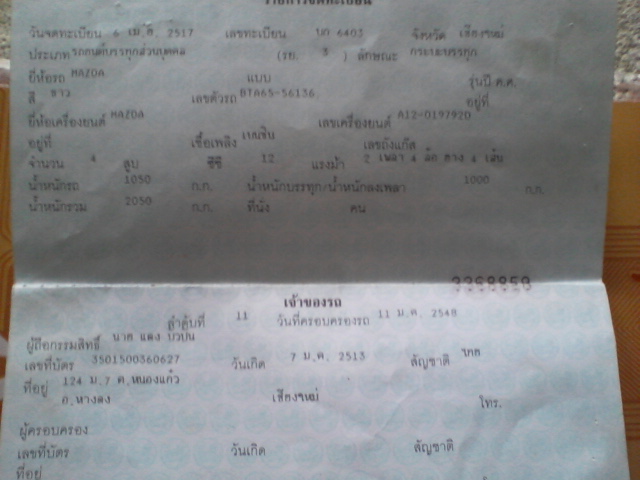 รายการจดทะเบียน
วันจดทะเบียน 6 เม.ย. 2517 เลขทะเบียน บก 6403 จังหวัด เชียงใหม่
ประเภท รถยนต์บรรทุกส่วนบุคคล (รย. 3 ) ลักษณะ กระบะบรรทุก
ยี่ห้อรถ MAZDA แบบ รุ่นปี ค.ศ.
สี ขาว เลขตัวรถ BTA65-56136 อยู่ที่
ยี่ห้อเครื่องยนต์ MAZDA เลขเครื่องยนต์ A12-0197920
อยู่ที่ เชื้อเพลิง เบนซิน เลขถังแก๊ส
จำนวน 4 สูบ ซีซี 12 แรงม้า 2 เพลา 4 ล้อ ยาง 4 เส้น
น้ำหนักรถ 1050 ก.ก. น้ำหนักบรรทุก/น้ำหนักลงเพลา 1000 ก.ก.
น้ำหนักรวม 2050 ก.ก. ที่นั่ง คน
3368850
เจ้าของรถ
ลำดับที่ 11 วันที่ครอบครองรถ 11 ม.ค. 2548
ผู้ถือกรรมสิทธิ์ นาย แดง
เลขที่บัตร 3501500360627 วันเกิด 7 ม.ค. 2513 สัญชาติ ไทย
ที่อยู่ 124 ม.7 ต.หนองแก๋ว
อ.หางดง เชียงใหม่ โทร.
ผู้ครอบครอง
เลขที่บัตร วันเกิด สัญชาติ
ที่อยู่